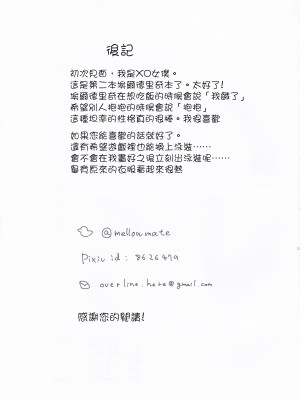 後記
初次見面，我是XO女僕。
這是第二本埃爾德里奇本了。太好了!
埃爾德里奇在想吃飯的時候會說「我餓了」
希望別人抱抱的時候會說「抱抱」
這種坦率的性格真的很棒。我很喜歡
如果您能喜歡的話就好了。
還有希望遊戲裡也能換上泳裝……
會不會在我畫好之後立刻出泳裝呢……
畢竟原來的衣服看起來很熱
@mellowmate
Pixiv id: 8626499
overline.here@gmail.com
感謝您的閱讀!